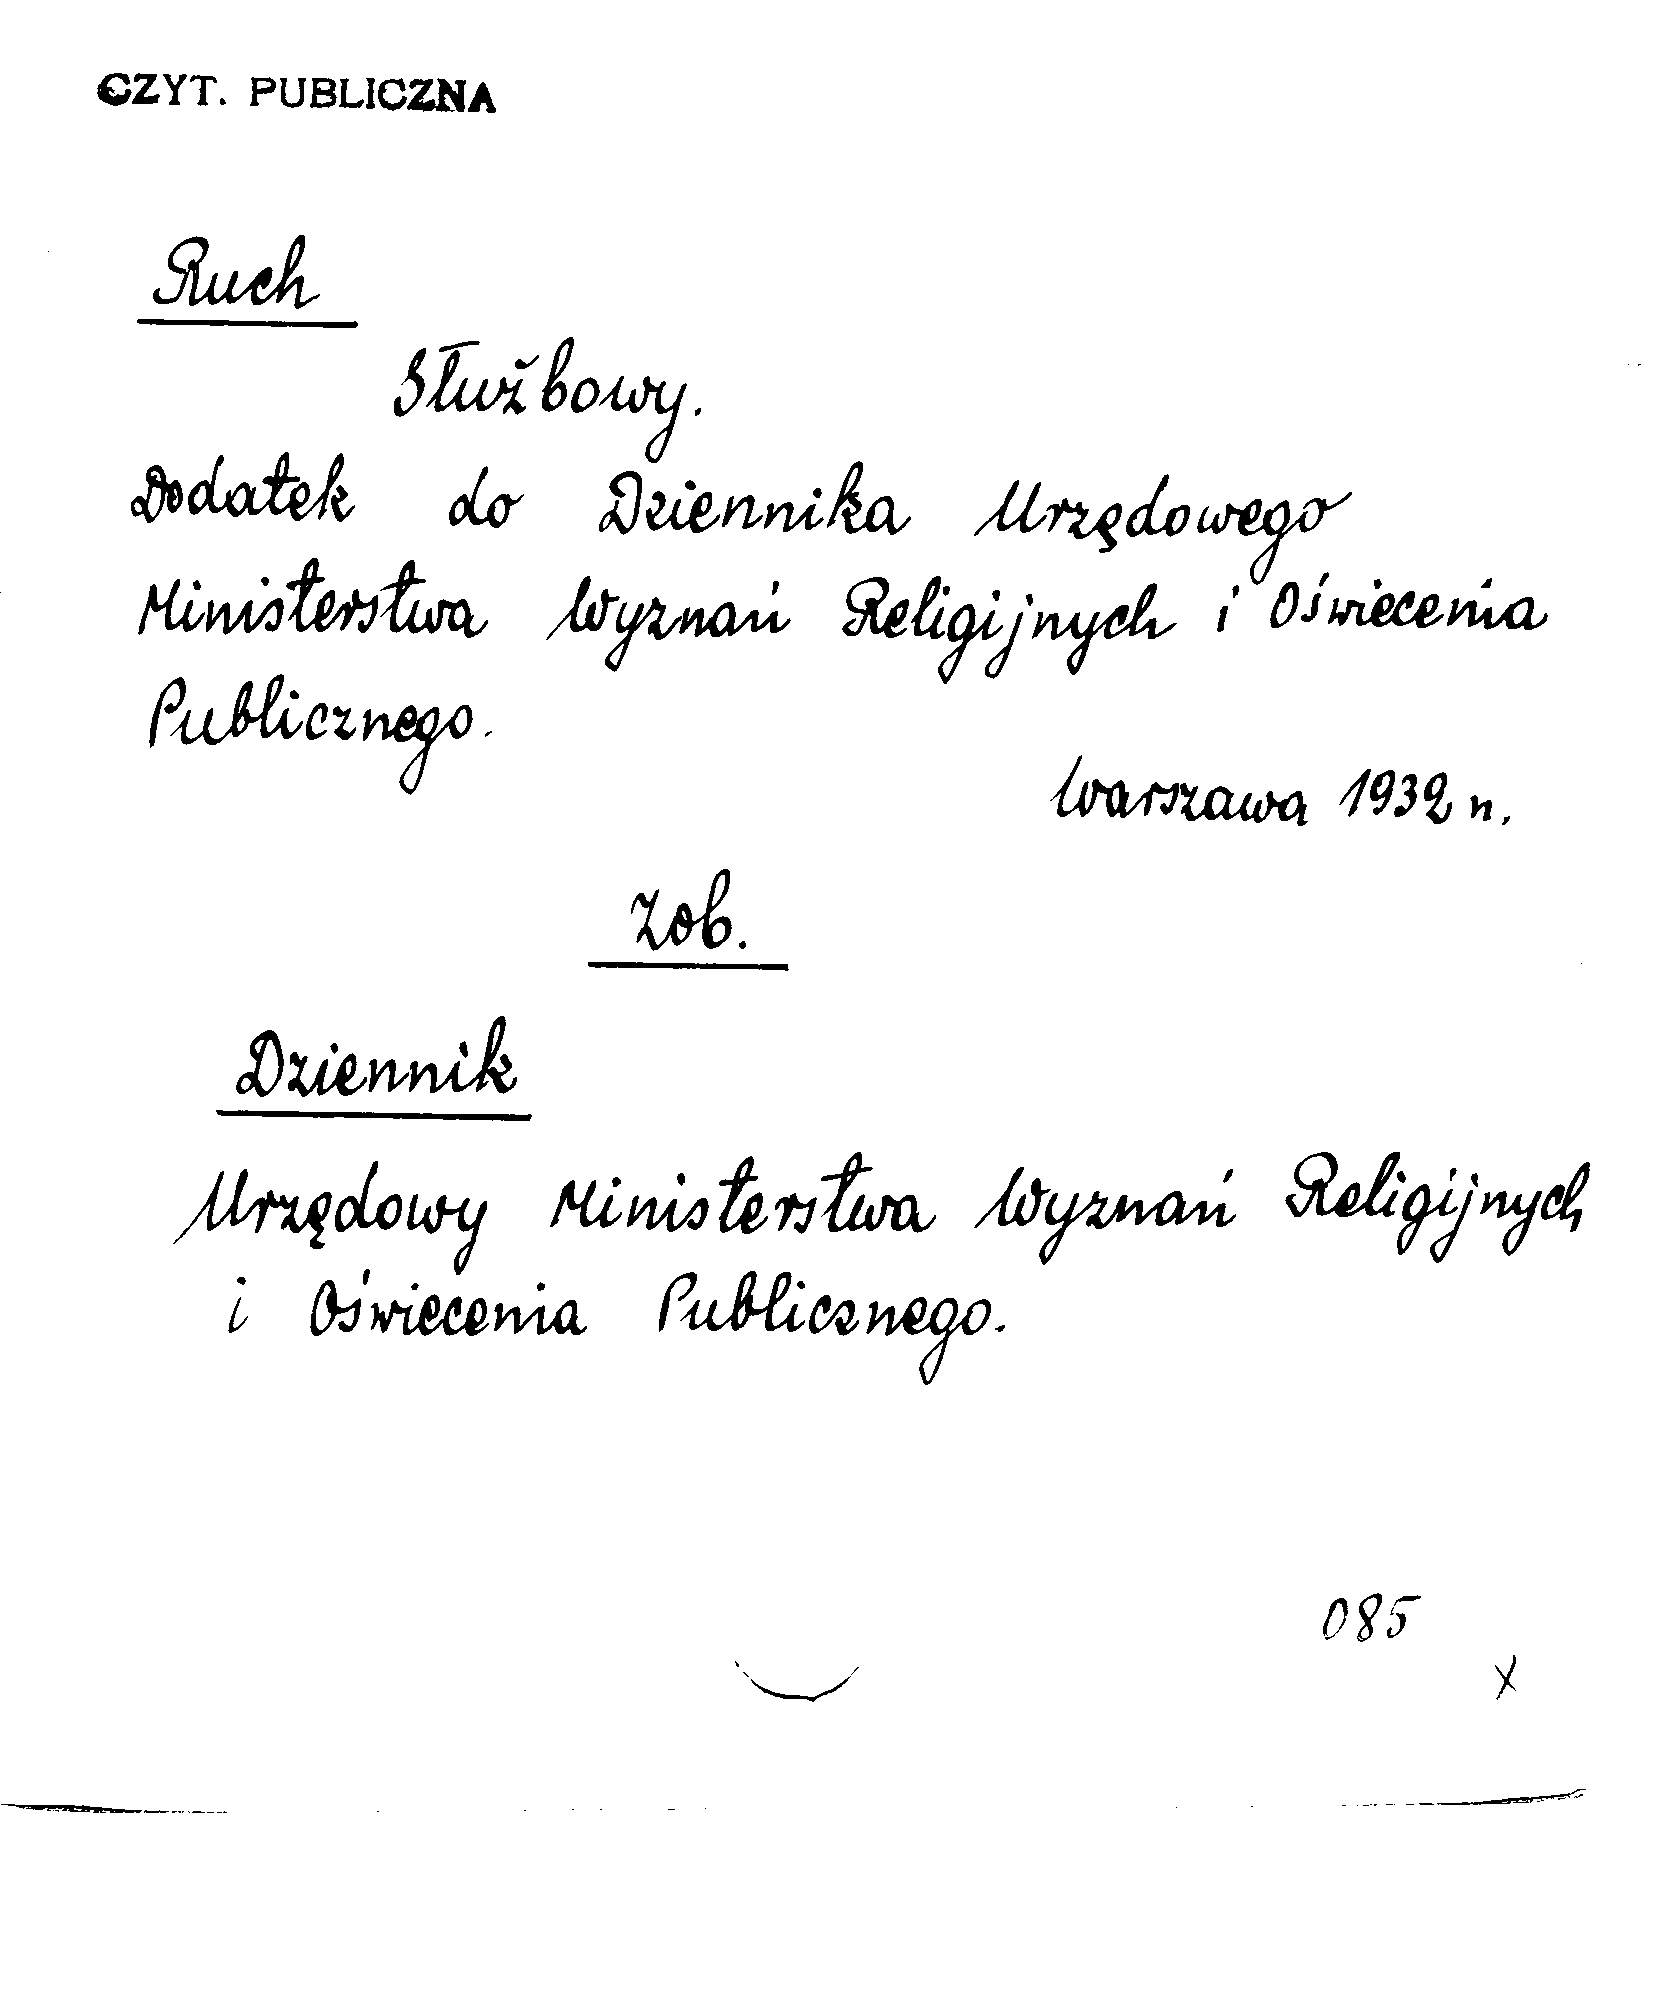 CZYT. PUBLICZNA
Ruch
Służbowy.
Dodatek do Dziennika Urzędowego
Ministerstwa Wyznań Religijnych i Oświecenia
Publicznego.
Warszawa 1932 r.
Zob.
Dziennik
Urzędowy Ministerstwa Wyznań Religijnych
i Oświecenia Publicznego.
085
x